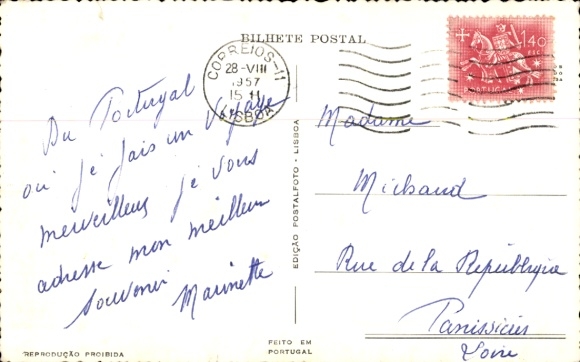 BILHETE POSTAL
CORREIOS-11
28-VIII
1957
15 H
LISBOA
1$40
PORTUGAL
Du Portugal
où je fais un voyage
merveilleux je vous
adresse mon meilleur
souvenir Marinette
Madame
Michaud
Rue de la République
Panissières
Loire
EDIÇÃO POSTALFOTO - LISBOA
REPRODUÇÃO PROIBIDA
FEITO EM
PORTUGAL